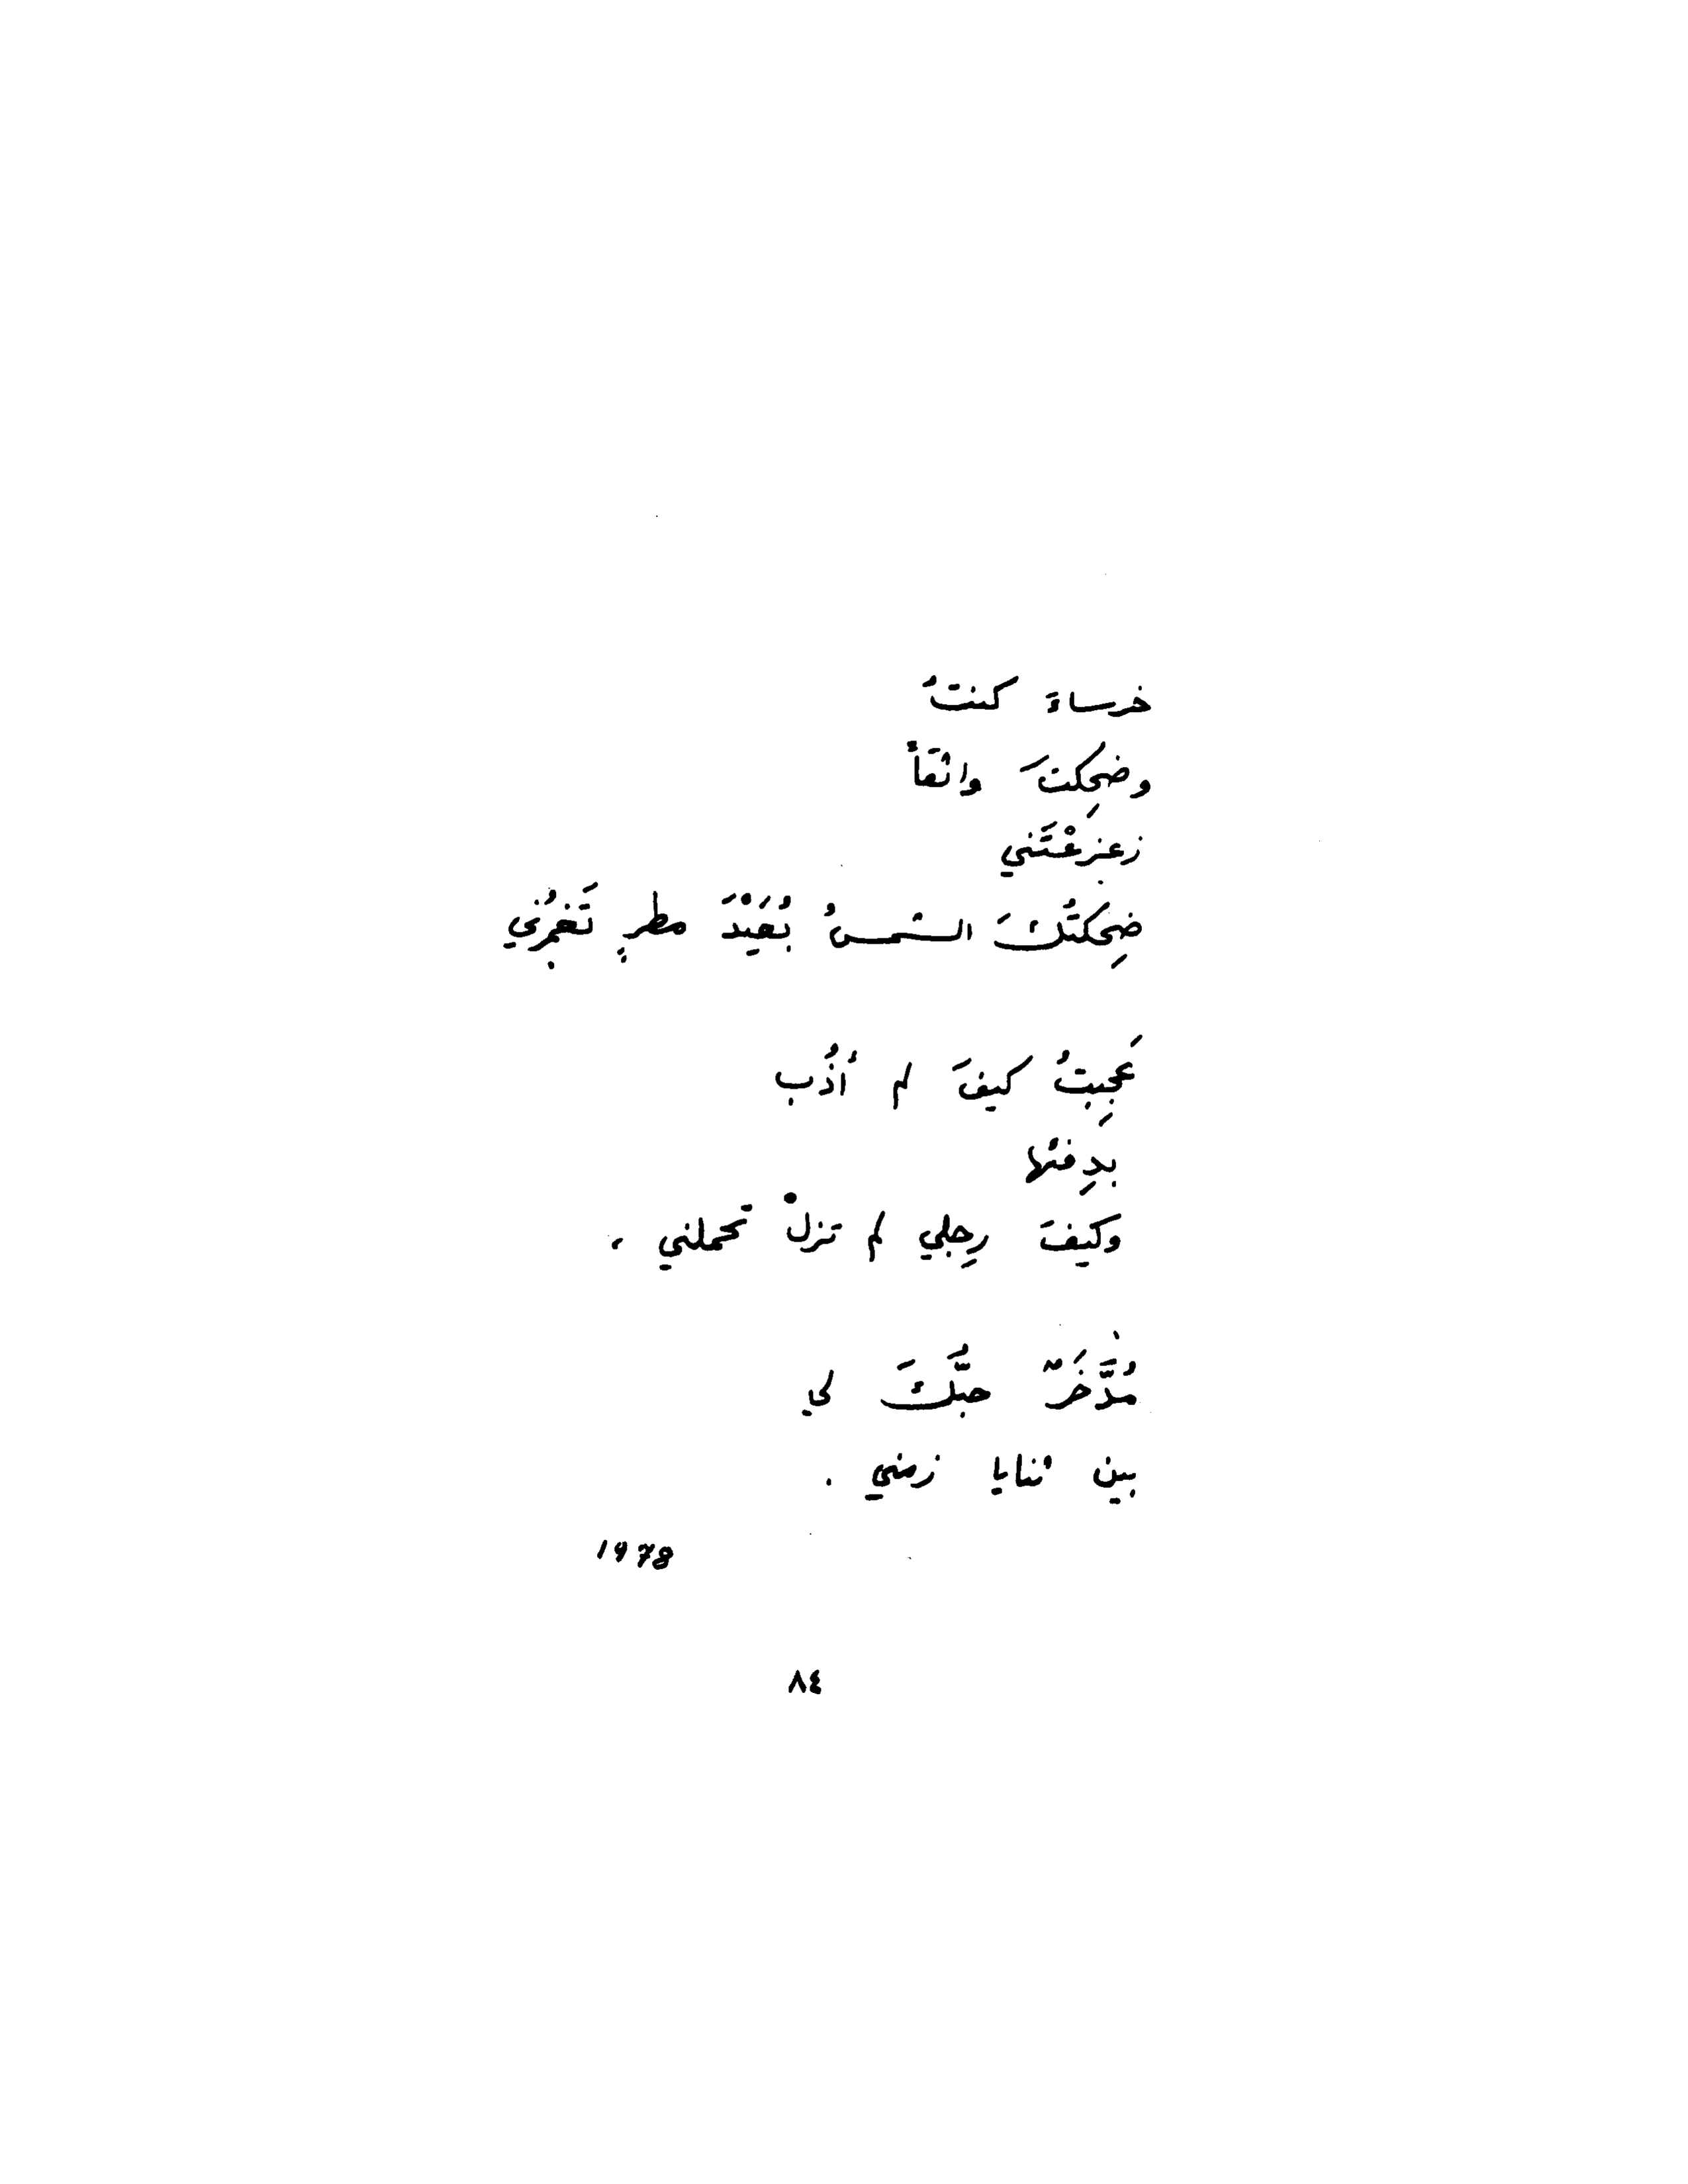 خرساءَ كنتُ
وضحِكتَ واثقاً
زعزَعْتَني
ضِحكتُكَ الشمسُ بُعَيْدَ مطرٍ تَغمُرُني
عَجِبتُ كيفَ لم أذُب
بدِفئها
وكيفَ رِجلي لم تزلْ تحملني ،
مُدَّخَرٌ حبُّكَ لي
بين ثنايا زمني .
1978
٨٤